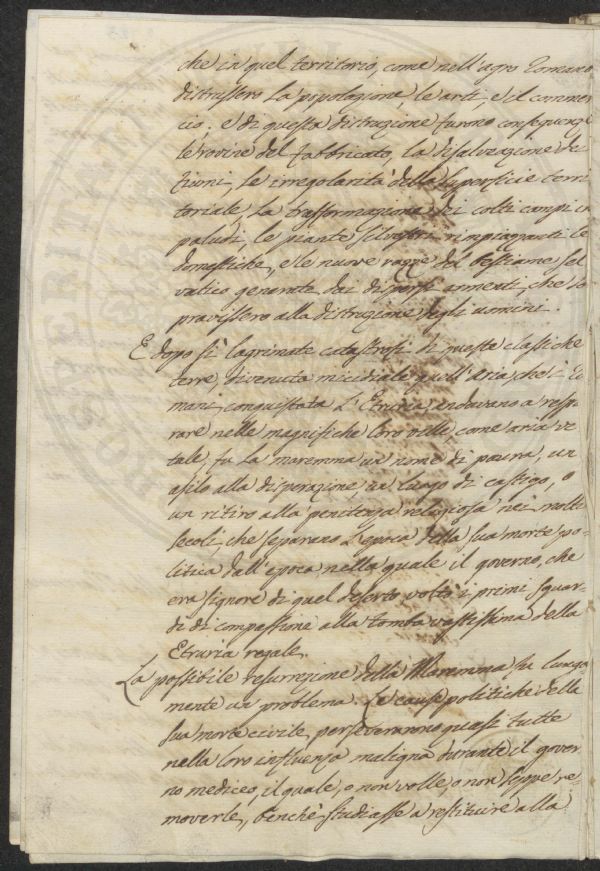 che in quel territorio, come nell'agro Romano
distrussero la popolazione, le arti, e il commer
cio; e di questa distruzione furono conseguenze
le rovine del fabbricato, la disalveazione dei
fiumi, le irregolarità della superficie terri
toriale, la trasformazione dei colti campi in
paludi, le piante silvestri rimpiazzanti le
domestiche, e le nuove razze del bestiame sel
vatico generate dai dispersi armenti, che so
pravissero alla distruzione degli uomini.
E dopo sì lagrimate catastrofi di queste classiche
terre, divenuta micidiale quell'aria, che i Ro
mani, conquistata l'Etruria, andavano a respi
rare nelle magnifiche loro ville, come aria vi
tale, fu la maremma un nome di paura, un
asilo alla disperazione, un luogo di castigo, o
un ritiro alla penitenza religiosa nei molti
secoli, che separano l'epoca della sua morte po-
litica dall'epoca nella quale il governo, che
era signore di quel deserto, voltò i primi sguar-
di di compassione alla tomba vastissima della
Etruria regale.
La possibile resurrezione della Maremma fu lunga
mente un problema. Le cause politiche della
sua morte civile, perseverarono quasi tutte
nella loro influenza maligna durante il gover
no mediceo, il quale, o non volle, o non seppe re-
moverle, benchè studiasse a restituire alla